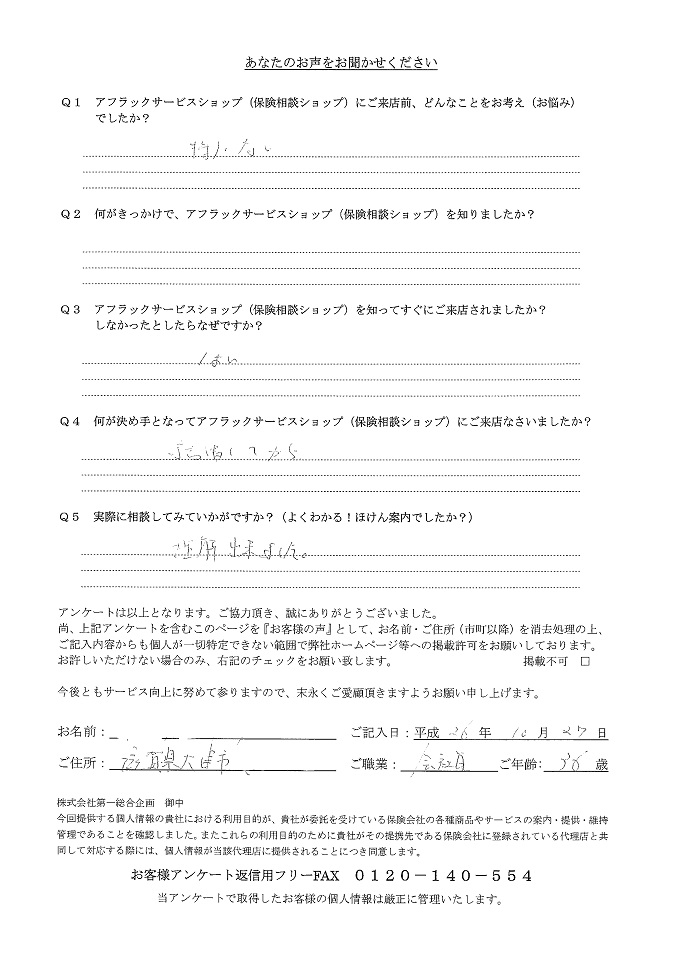 あなたのお声をお聞かせください
Q1 アフラックサービスショップ（保険相談ショップ）にご来店前、どんなことをお考え（お悩み）
でしたか？
特にない
Q2 何がきっかけで、アフラックサービスショップ（保険相談ショップ）を知りましたか？
Q3 アフラックサービスショップ（保険相談ショップ）を知ってすぐにご来店されましたか？
しなかったとしたらなぜですか？
はい
Q4 何が決め手となってアフラックサービスショップ（保険相談ショップ）にご来店なさいましたか？
してから
Q5 実際に相談してみていかがですか？（よくわかる！ほけん案内でしたか？）
理解出来ました。
アンケートは以上となります。ご協力頂き、誠にありがとうございました。
尚、上記アンケートを含むこのページを『お客様の声』として、お名前・ご住所（市町以降）を消去処理の上、
ご記入内容からも個人が一切特定できない範囲で弊社ホームページ等への掲載許可をお願いしております。
お許しいただけない場合のみ、右記のチェックをお願い致します。 掲載不可 □
今後ともサービス向上に努めて参りますので、末永くご愛顧頂きますようお願い申し上げます。
お名前： ご記入日：平成 26 年 10 月 27 日
ご住所： 滋賀県大津市 ご職業： 会社員 ご年齢： 38 歳
株式会社第一総合企画 御中
今回提供する個人情報の貴社における利用目的が、貴社が委託を受けている保険会社の各種商品やサービスの案内・提供・維持
管理であることを確認しました。またこれらの利用目的のために貴社がその提携先である保険会社に登録されている代理店と共
同して対応する際には、個人情報が当該代理店に提供されることにつき同意します。
お客様アンケート返信用フリーFAX 0120－140－554
当アンケートで取得したお客様の個人情報は厳正に管理いたします。